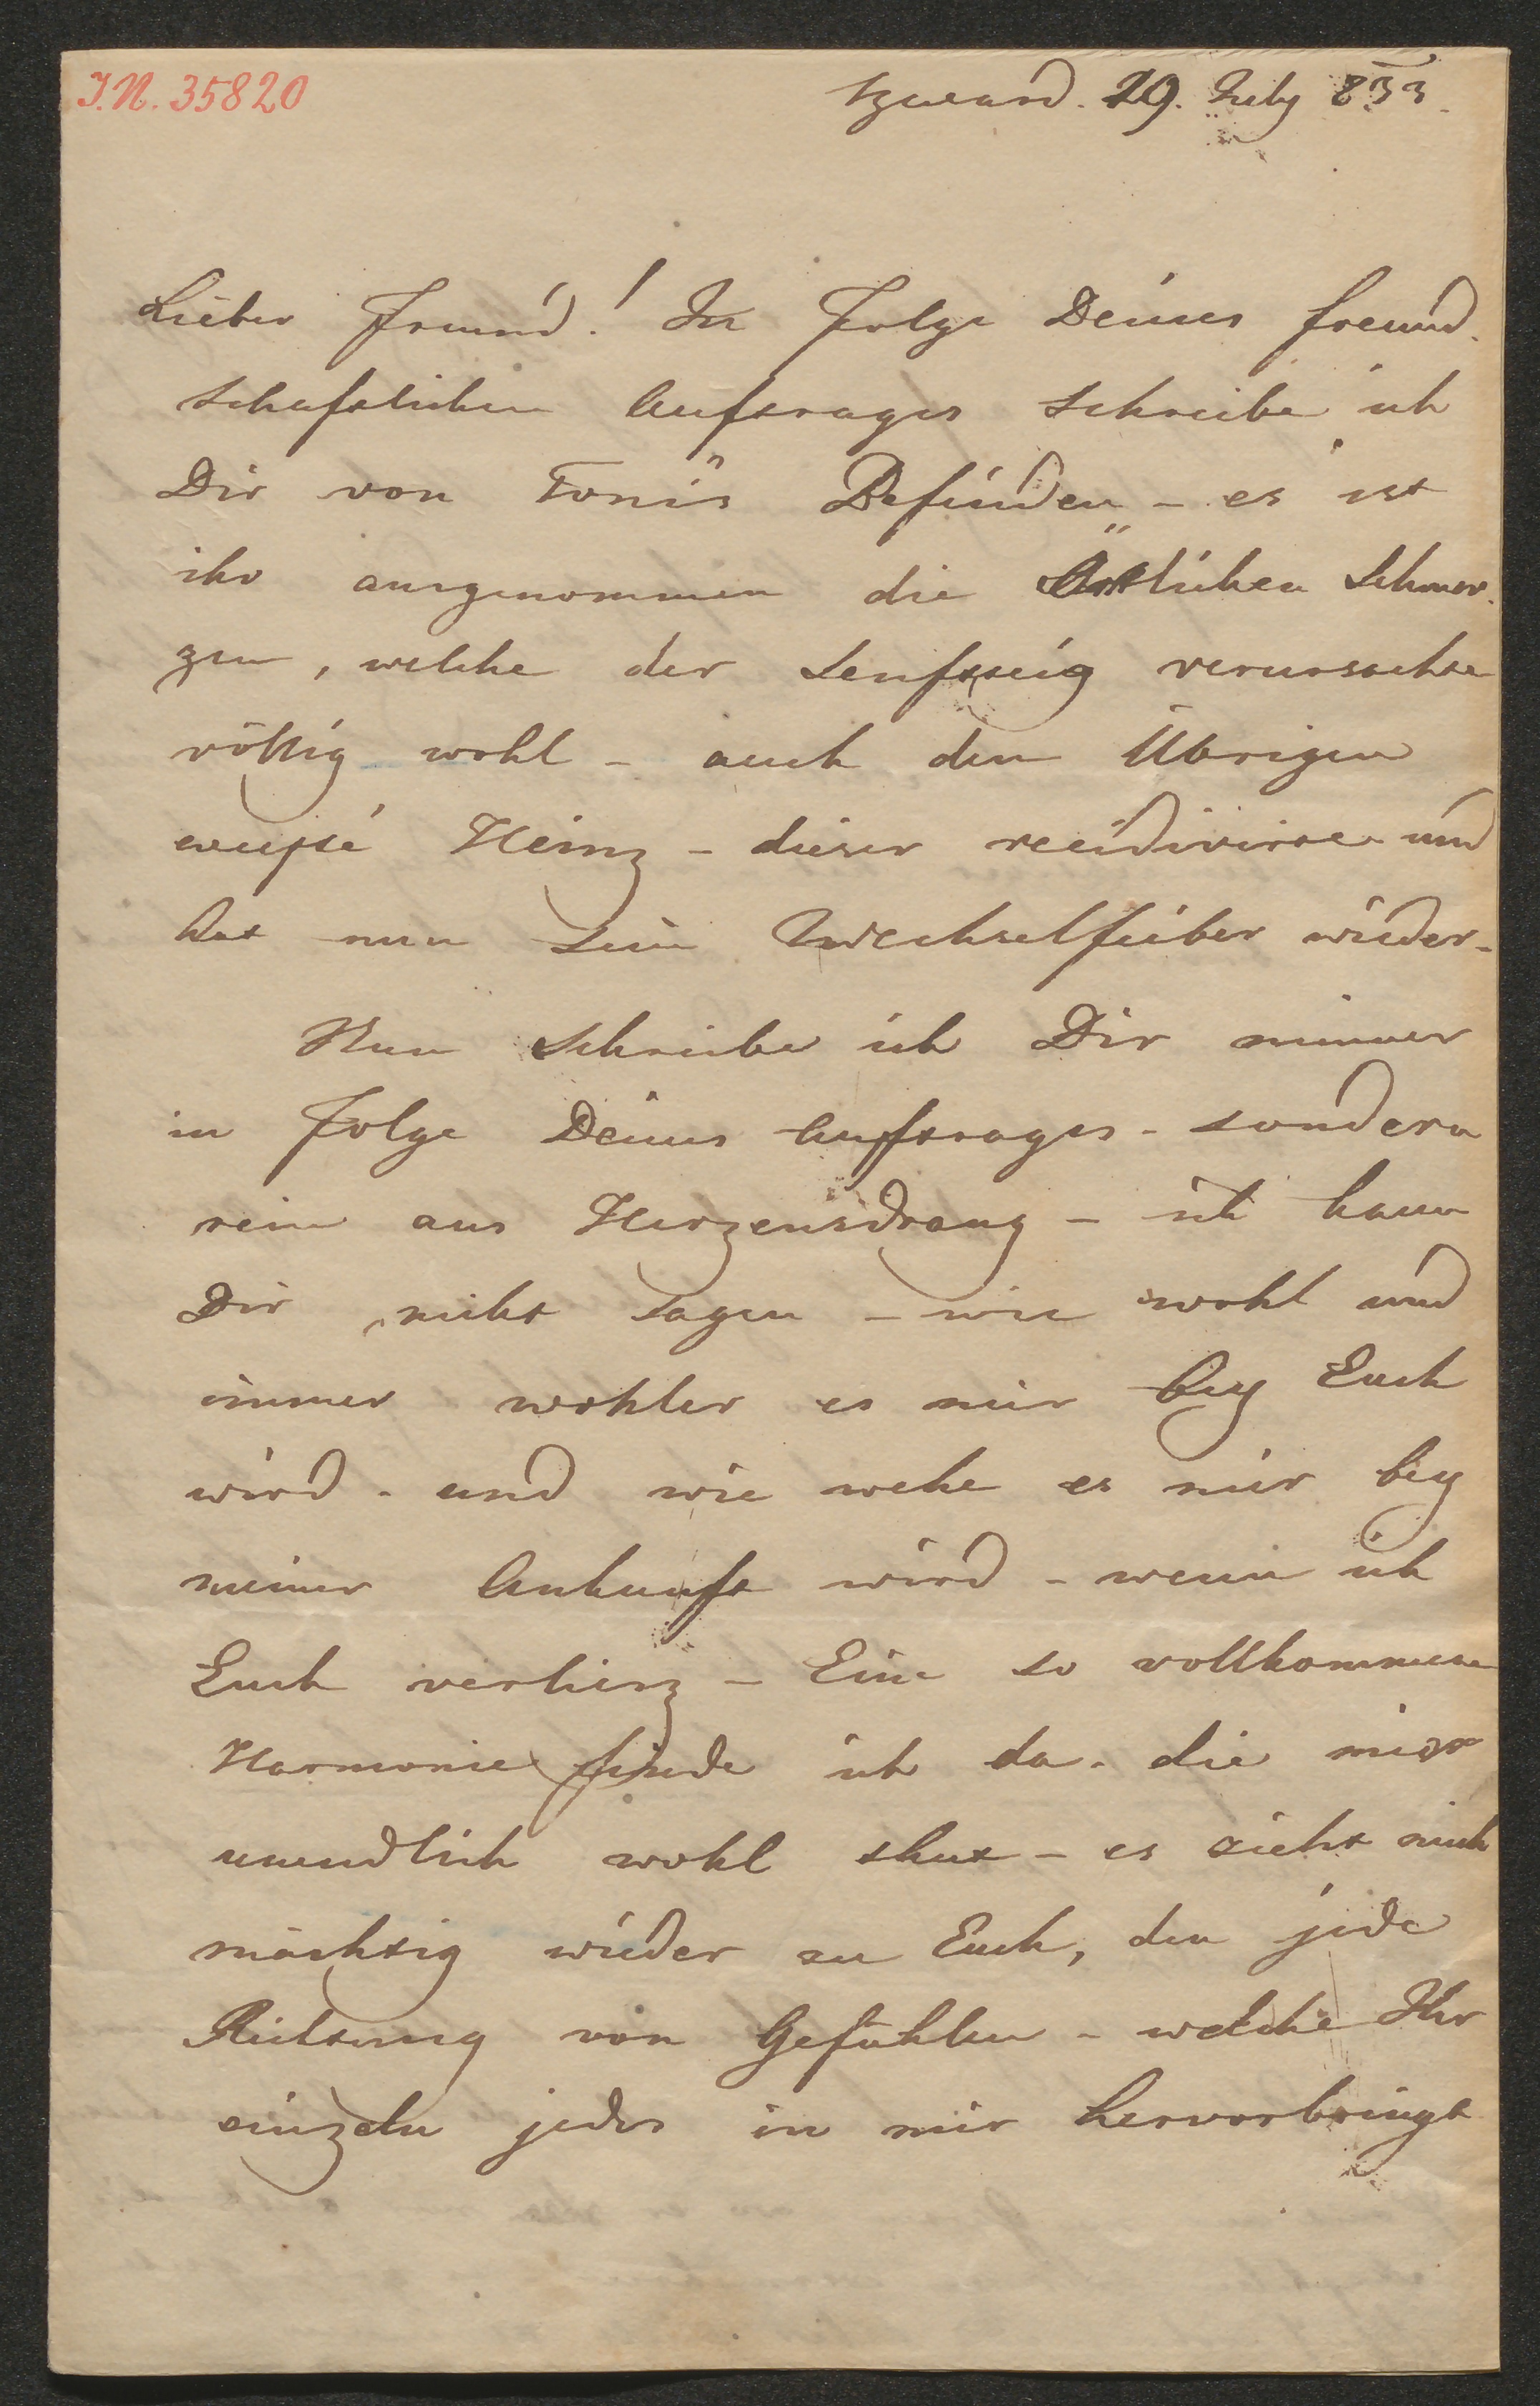 I.N. 35820
29. July 833.
Lieber Freund! In Folge Deines freund-
schaftlichen Auftrages schreibe ich
Dir von Toni's Befinden - es ist
ihr ausgenommen die Örtlichen Schmer-
zen, welche der Senfteig verursachte
völlig wohl - auch den Übrigen
excepté Heinz - dieser recidivirte und
hat nun sein Wechselfieber wieder-
Nun schreibe ich Dir nimmer
in Folge Deines Auftrages - sondern
rein aus Herzensdrang - ich kann
Dir nicht sagen - wie wohl und
immer wohler es mir bey Euch
wird - und wie wehe es mir bey
meiner Ankunft wird - wenn ich
Euch verliere - Eine so vollkommene
Harmonie finde ich da - die mir
unendlich wohl thut - es zieht mich
mächtig wieder zu Euch, den jede
Richtung von Gefühlen - welche Ihr
einzeln jedes in mir hervorbringt